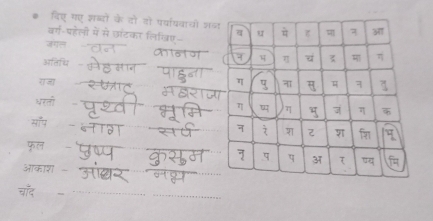 * दिए गए शब्दों के दो दो पर्यायवाची शब्द
वर्ग-पहेली में से छांटकर लिखिए-
जंगल - वन कानन
अतिथि - मेहमान पाहुना
राजा - सम्राट महाराजा
धरती - पृथ्वी भूमि
साँप - नाग सर्प
फूल - पुष्प कुसुम
आकाश - अंबर नभ
चाँद -
व ध मे ह मा न आ
न प रा चं द्र मा ग
ग पु ना सु म न
ग ष्प भु जं ग क
न रे श ट श शि भू
नृ प प अ र ण्य मि